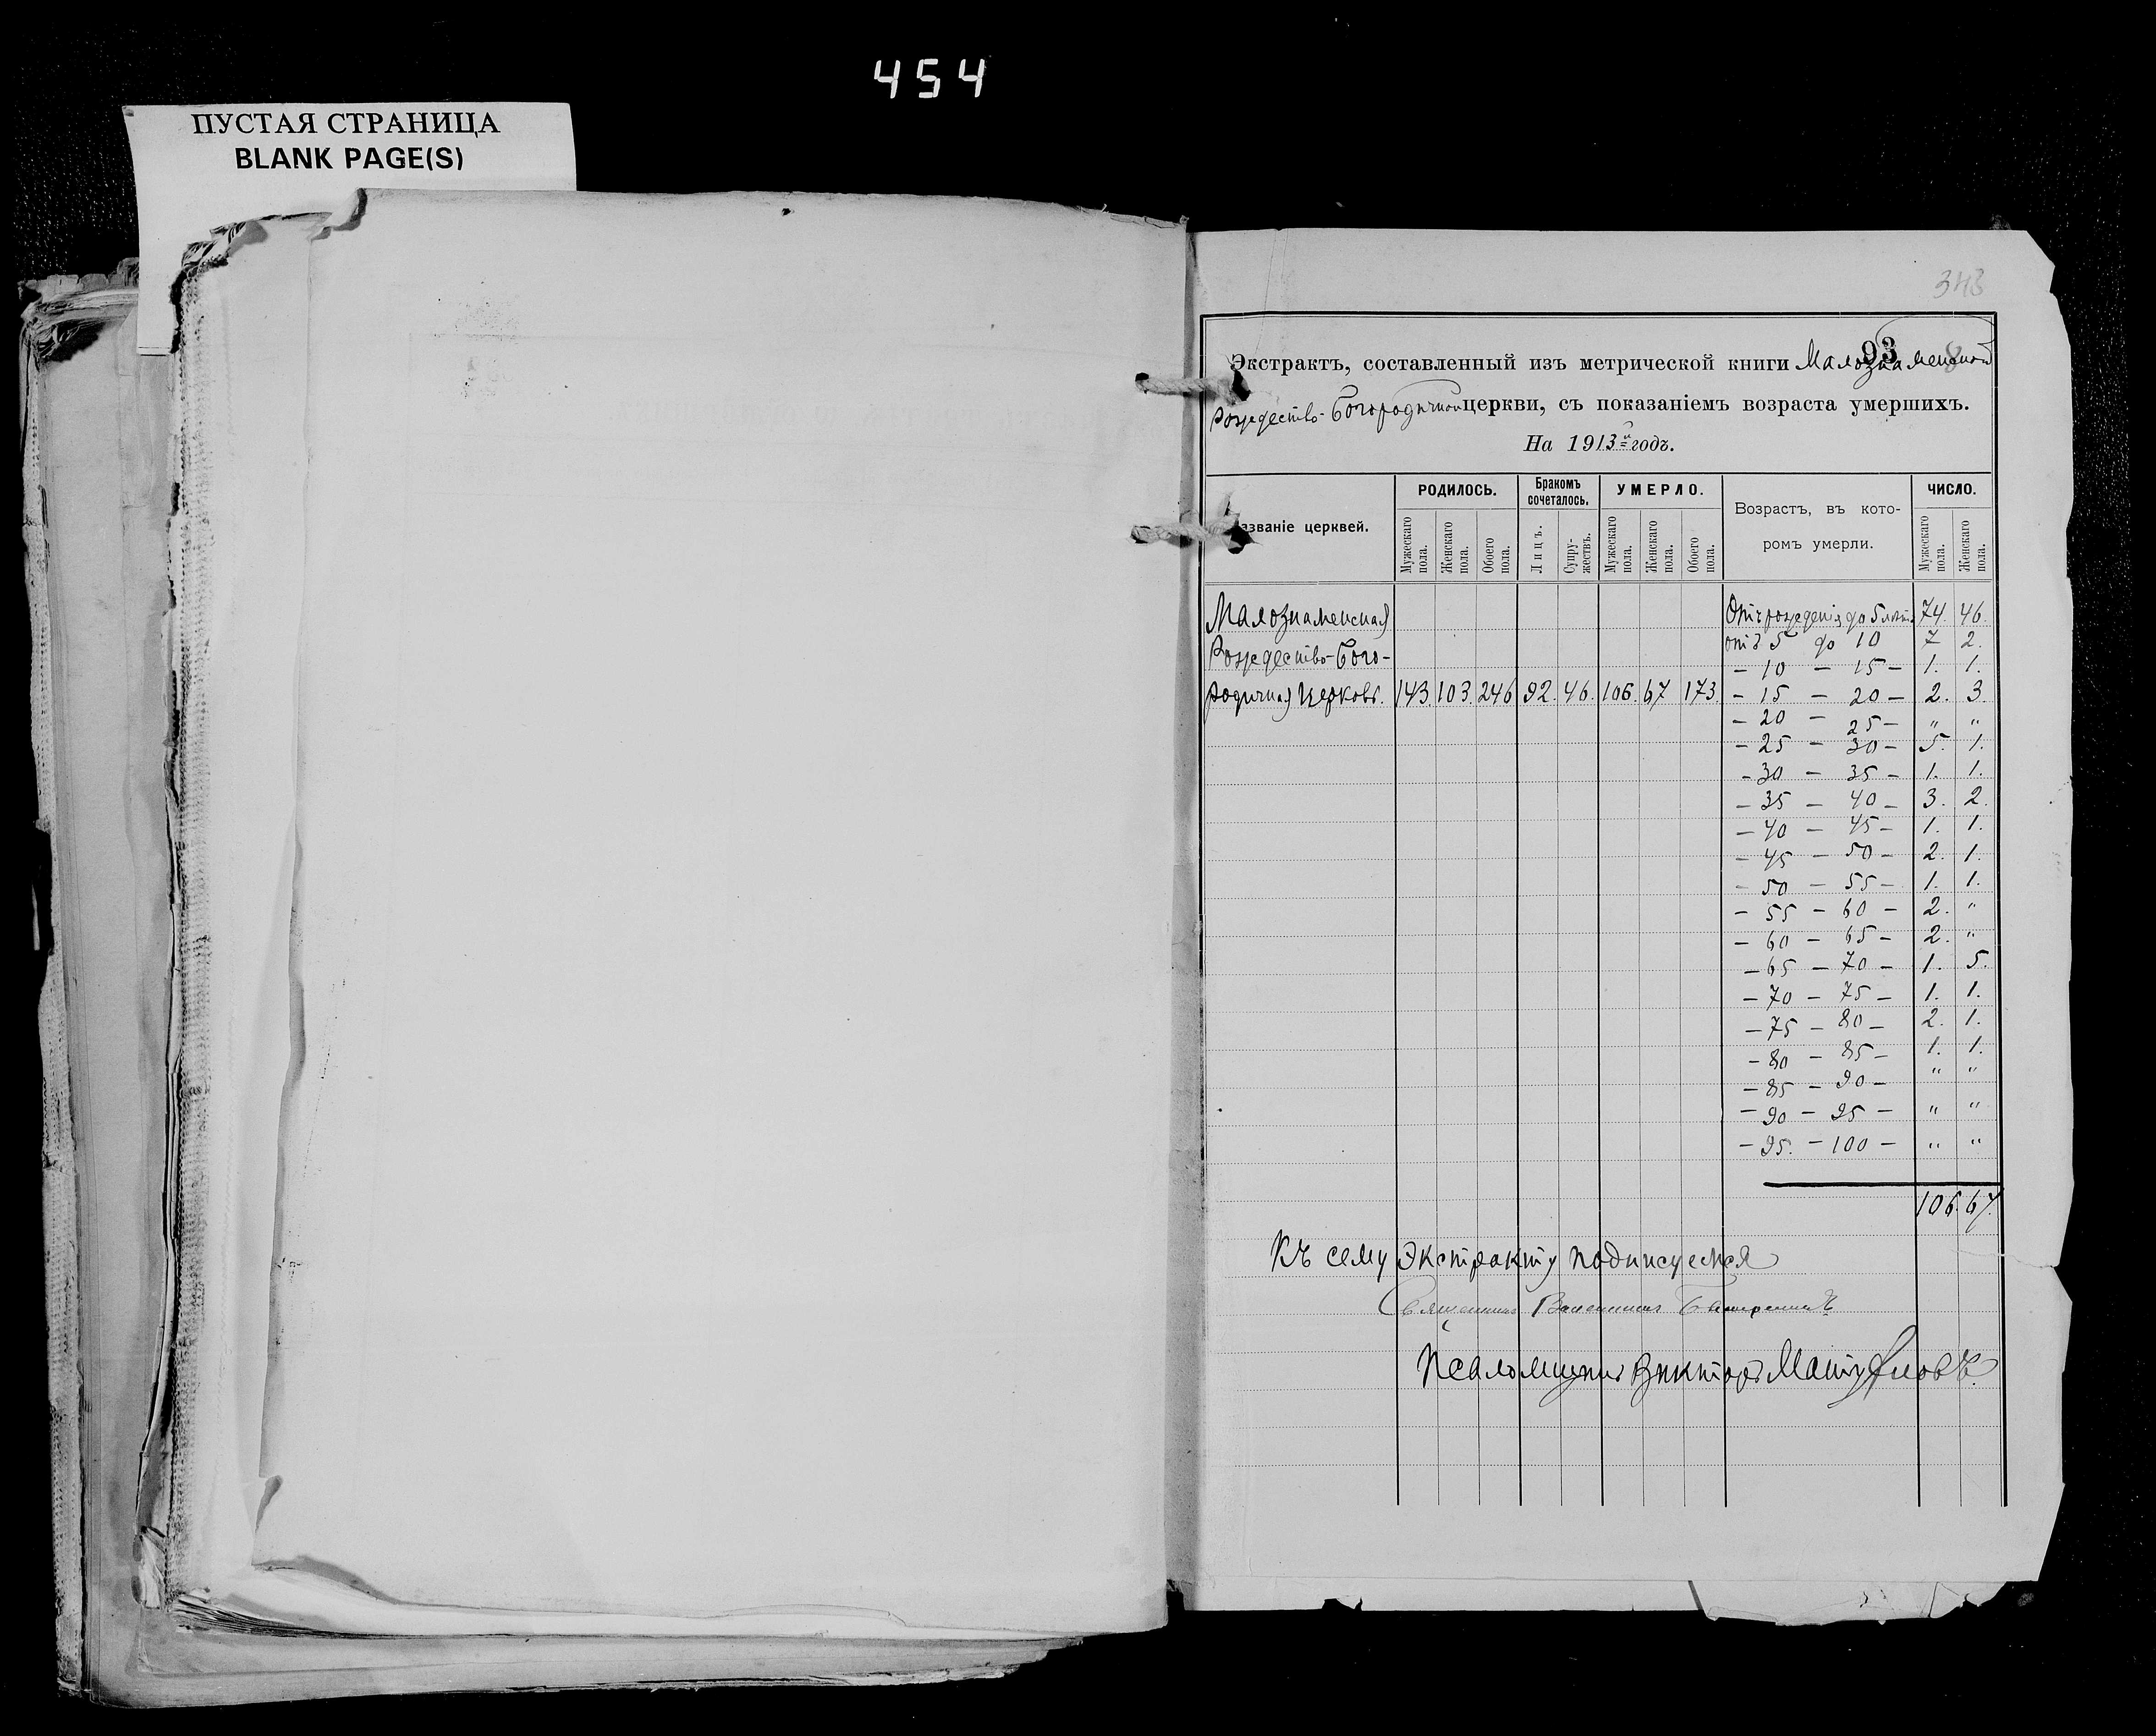 454
ПУСТАЯ СТРАНИЦА
BLANK PAGE(S)
343
93
Экстрактъ, составленный изъ метрической книги Малознаменской
Рождество-Богородичной церкви, съ показаніемъ возраста умершихъ.
На 1913й годъ.
Названіе церквей.
РОДИЛОСЬ.
Бракомъ сочеталось.
УМЕРЛО.
Возрастъ, въ кото-
ромъ умерли.
ЧИСЛО.
Мужескаго пола.
Женскаго пола.
Обоего пола.
Лицъ.
Супру-жествъ.
Мужескаго пола.
Женскаго пола.
Обоего пола.
Мужескаго пола.
Женскаго пола.
Малознаменская
Рождество-Бого-
родичная Церковь. 143. 103. 246 92. 46. 106. 67 173
Отъ рожденія до 5 лѣтъ 74. 46.
отъ 5 до 10 7 2.
- 10 - 15 - 1. 1.
- 15 - 20 - 2. 3.
- 20 - 25 - " "
- 25 - 30 - 5. 1.
- 30 - 35 - 1. 1.
- 35 - 40 - 3. 2.
- 40 - 45 - 1. 1.
- 45 - 50 - 2. 1.
- 50 - 55 - 1. 1.
- 55 - 60 - 2. "
- 60 - 65 - 2. "
- 65 - 70 - 1. 5.
- 70 - 75 - 1. 1.
- 75 - 80 - 2. 1.
- 80 - 85 - 1. 1.
- 85 - 90 - " "
- 90 - 95 - " "
- 95. - 100 - " "
106. 67.
Къ сему экстракту подписуемся
Священникъ
Псаломщикъ Викторъ